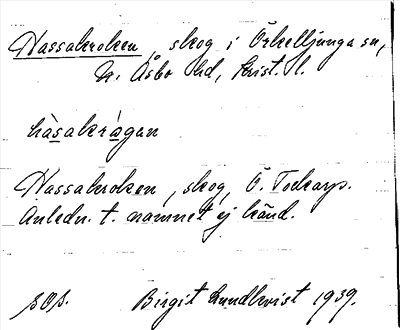 Hassakroken, skog i Örkelljunga sn,
N. Åsbo hd, Krist. l.
hàsakrágan
Hassakroken, skog, Ö. Tockarp.
Anledn. t. namnet ej känd.
Birgit Lundkvist 1939.